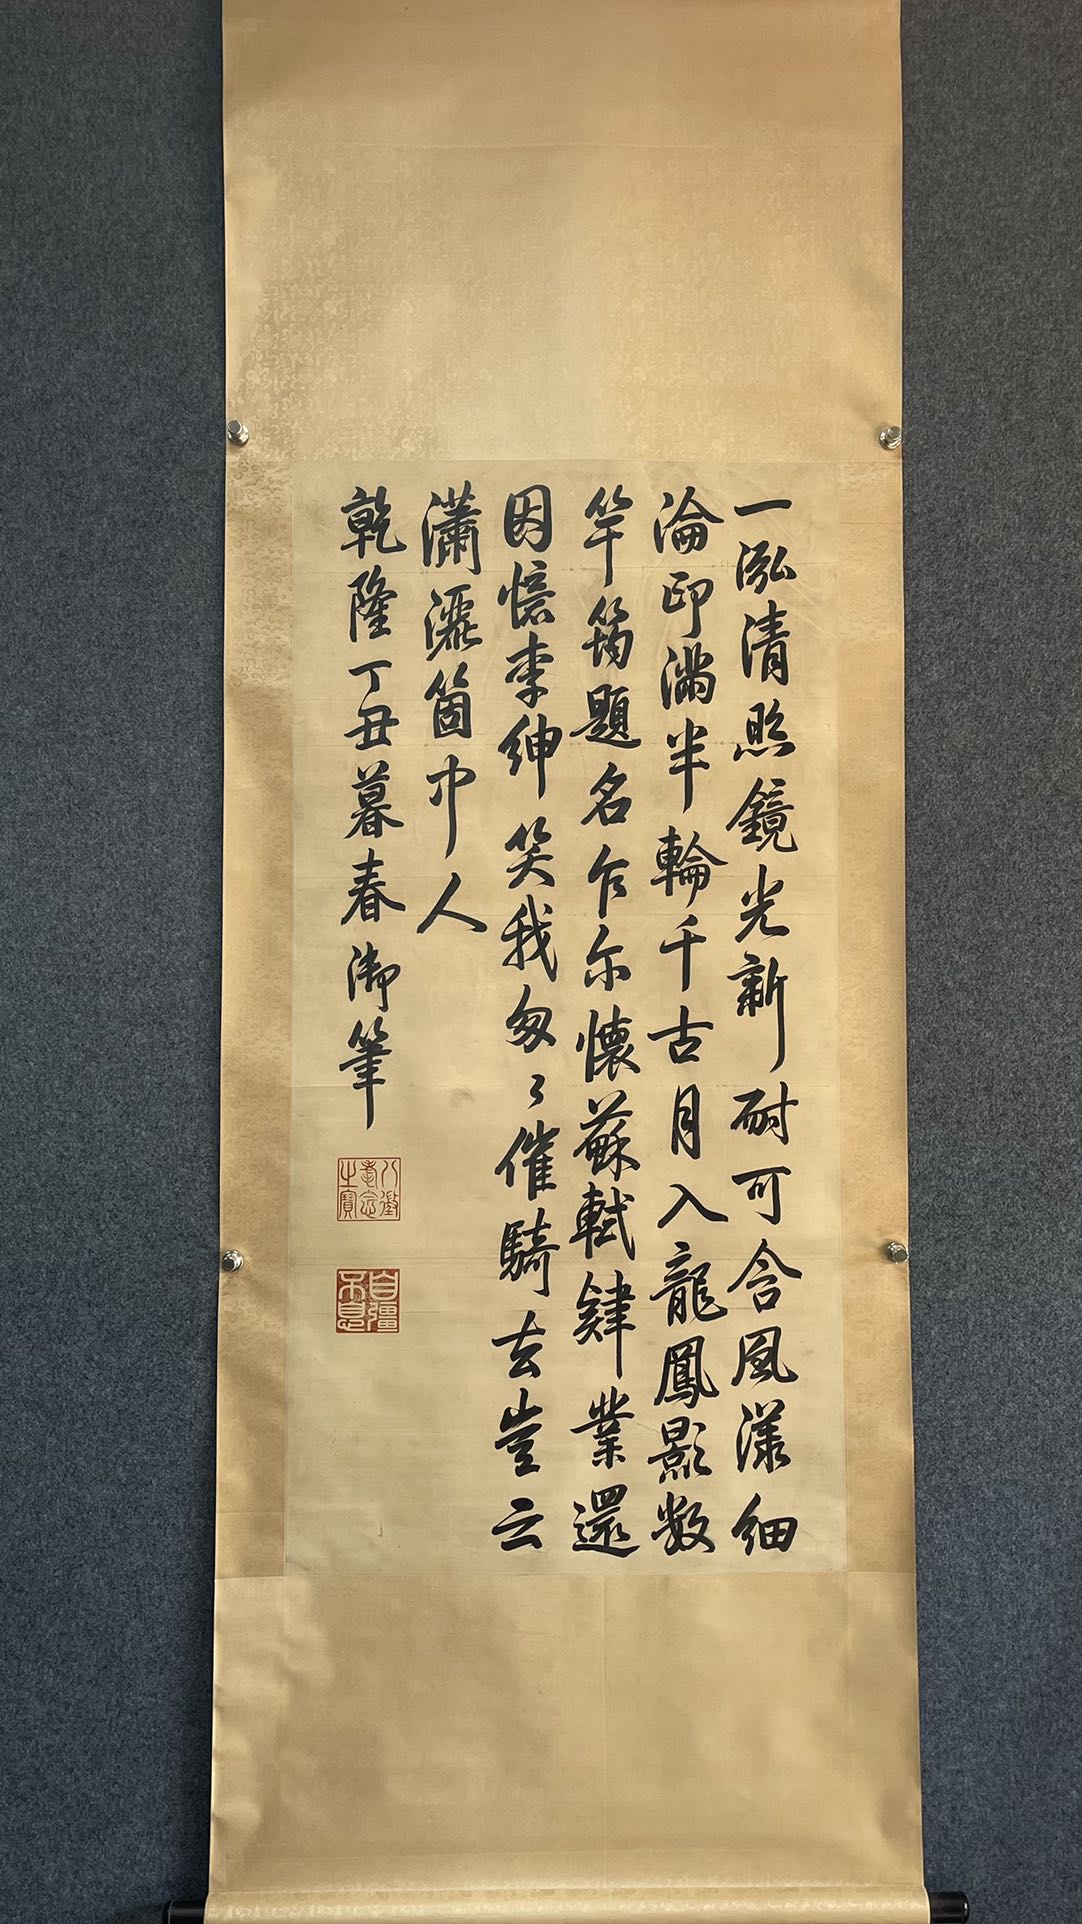 一泓清照鏡光新耐可含風漾細
淪印滿半輪千古月入龍鳳影數
竿筠題名乍尔懷蘇軾肄業還
因憶李紳笑我匆〻催騎去豈云
瀟灑箇中人
乾隆丁丑暮春御筆
八徵耄念之寶
自彊不息